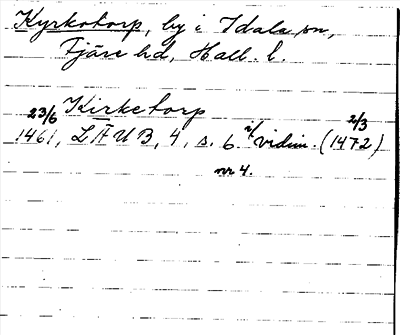 Kyrkotorp, by i Idala sn,
Fjäre hd, Hall. l.
Kirketorp
23/6 2/3
1461, LÄUB, 4, s. 6. vidim. (1472)
nr 4.